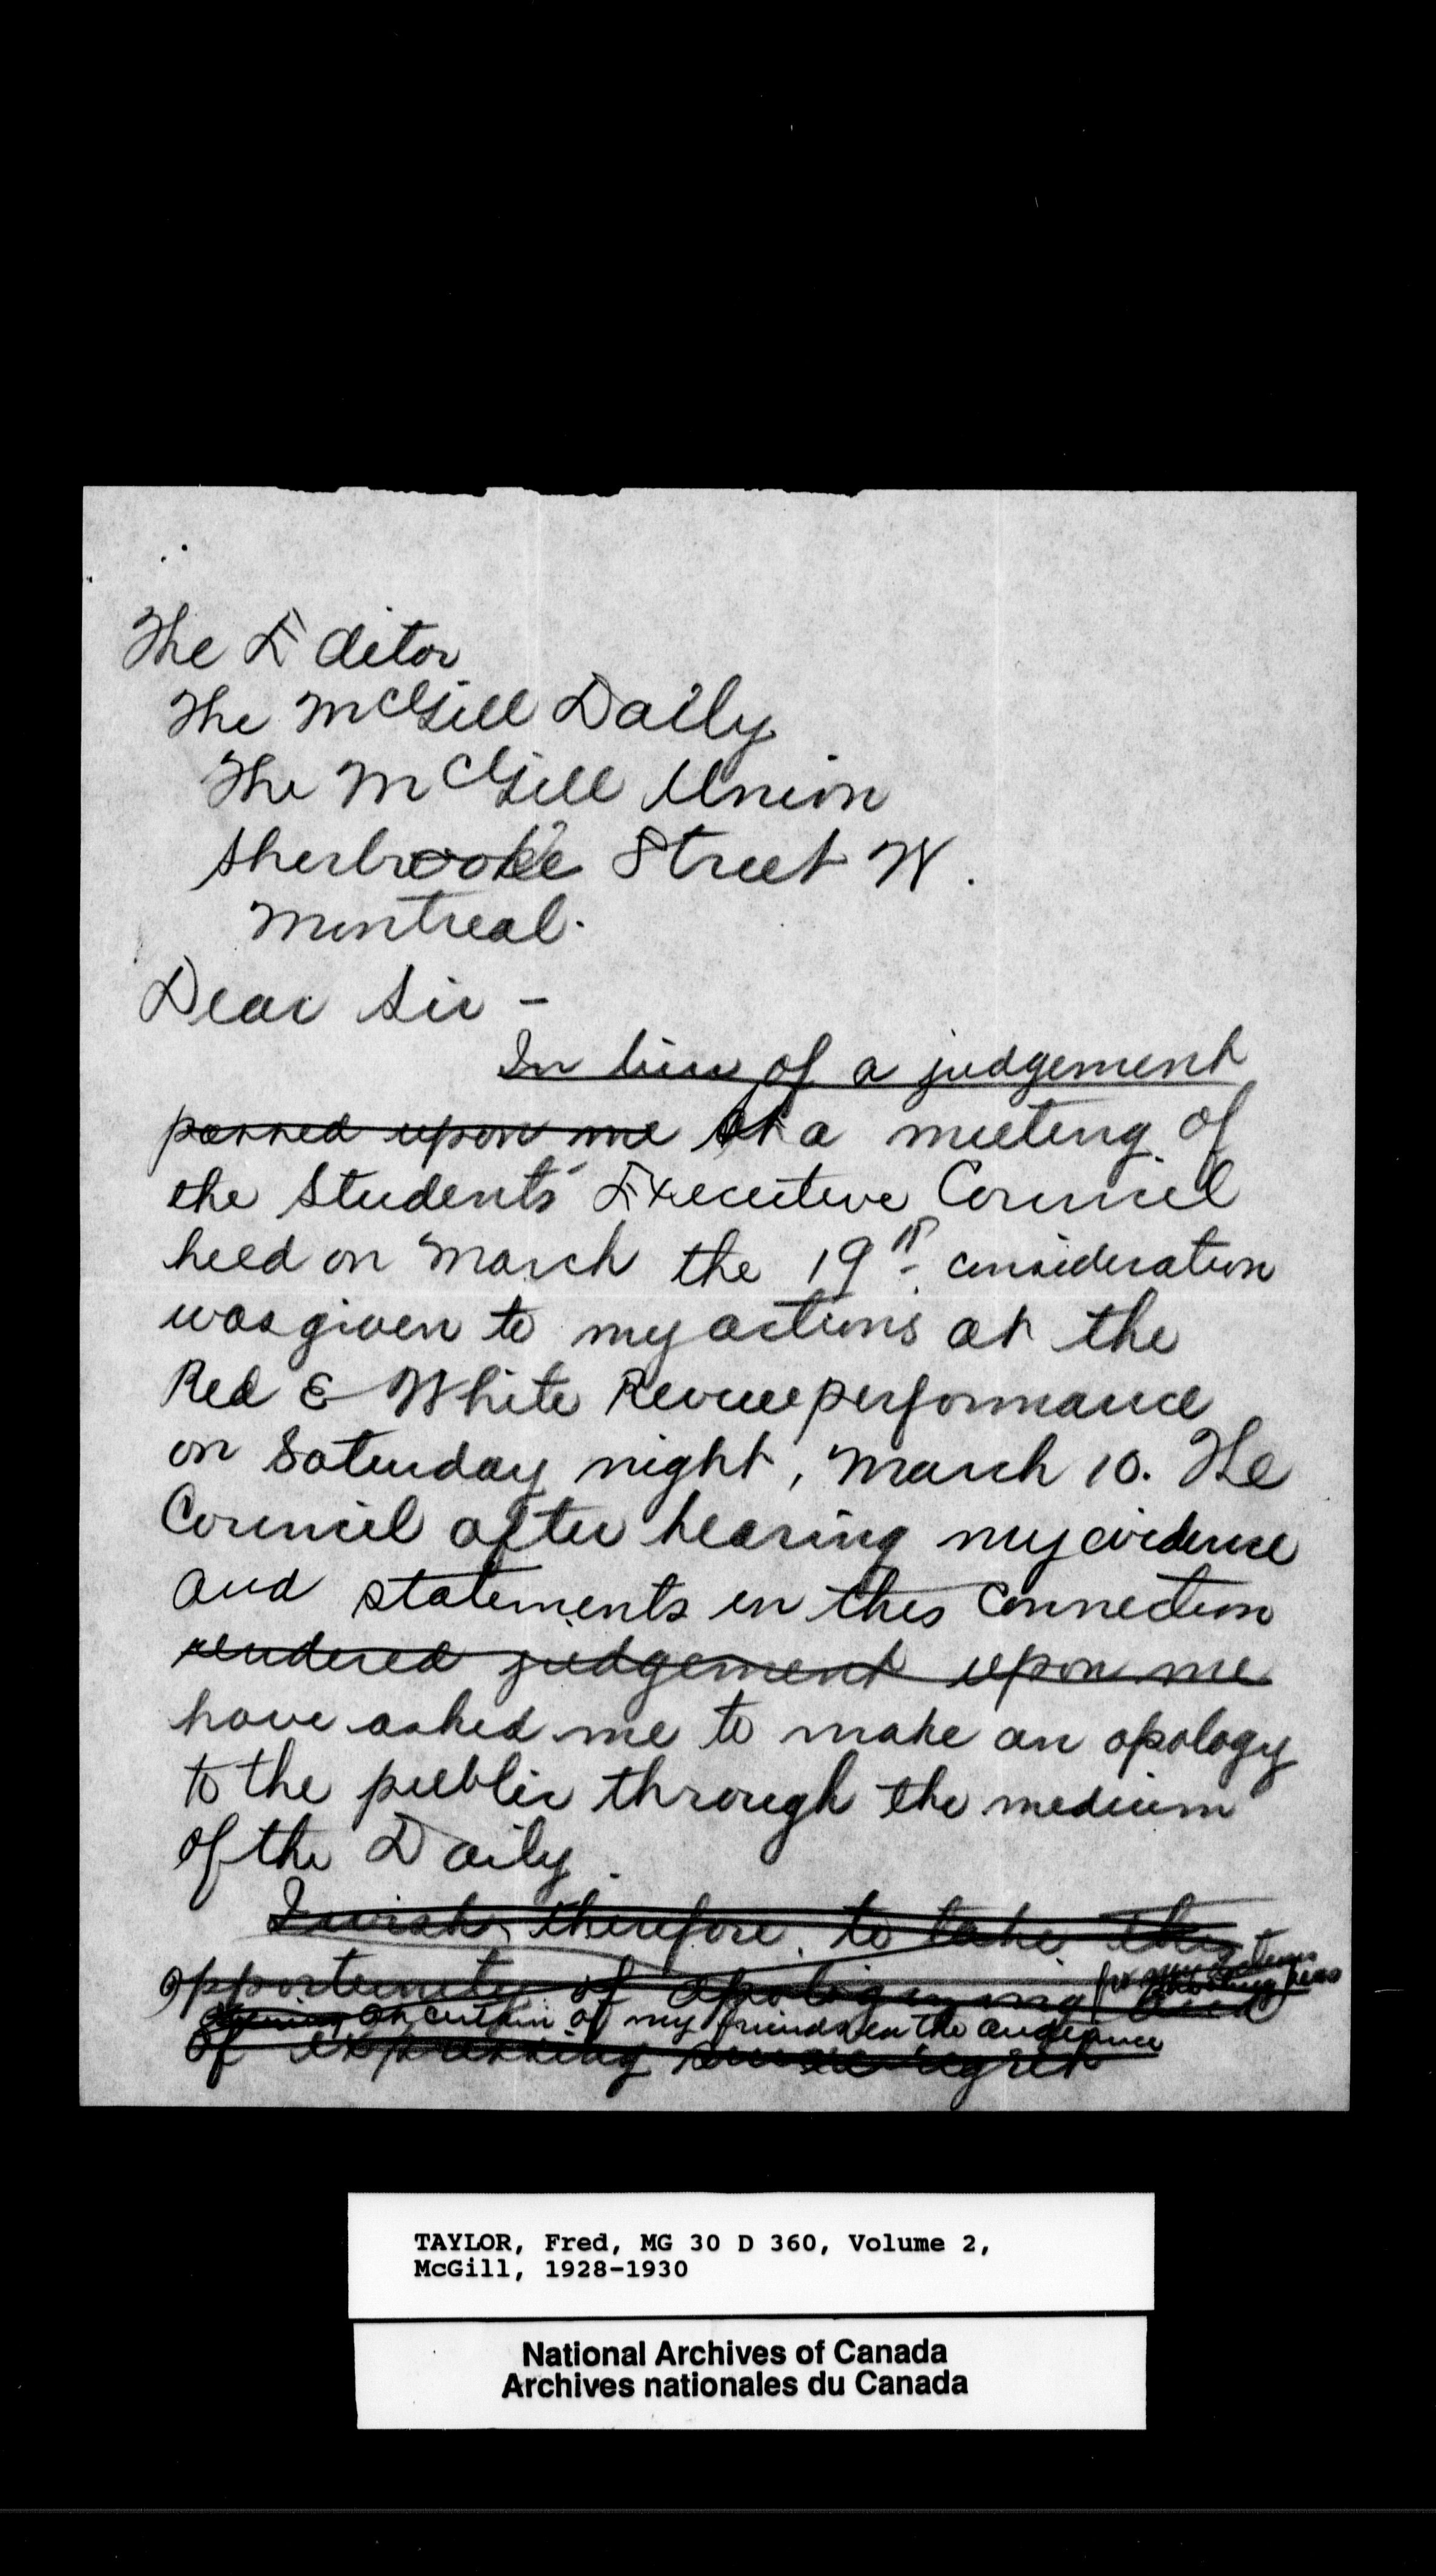 The Editor
The McGill Daily
The McGill Union
Sherbrooke Street W.
Montreal.
Dear Sir -
In lieu of a judgement
passed upon me At a meeting of
the Students' Executive Council
held on March the 19th consideration
was given to my actions at the
Red & White Revue performance
on Saturday night, March 10. The
Council after hearing my evidence
and statements in this connection
rendered judgement upon me
have asked me to make an apology
to the public through the medium
of the Daily.
I wish, therefore, to take this
opportunity of apologizing for my actions
shooting peas and
on certain of my friends in the audience
of expressing regret
TAYLOR, Fred, MG 30 D 360, Volume 2,
McGill, 1928-1930
National Archives of Canada
Archives nationales du Canada